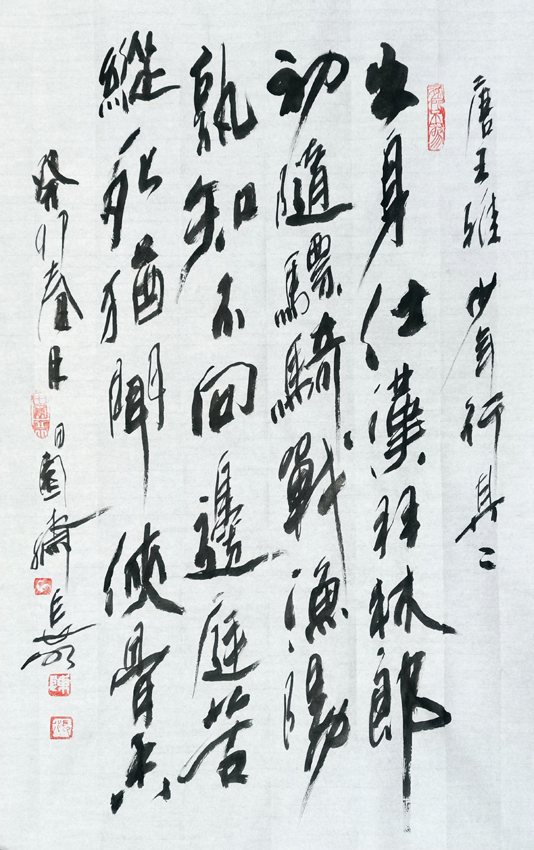 唐王維少年行其二
出身仕漢羽林郎
初隨驃騎戰漁陽
孰知不向邊庭苦
縱死猶聞俠骨香
癸卯春月